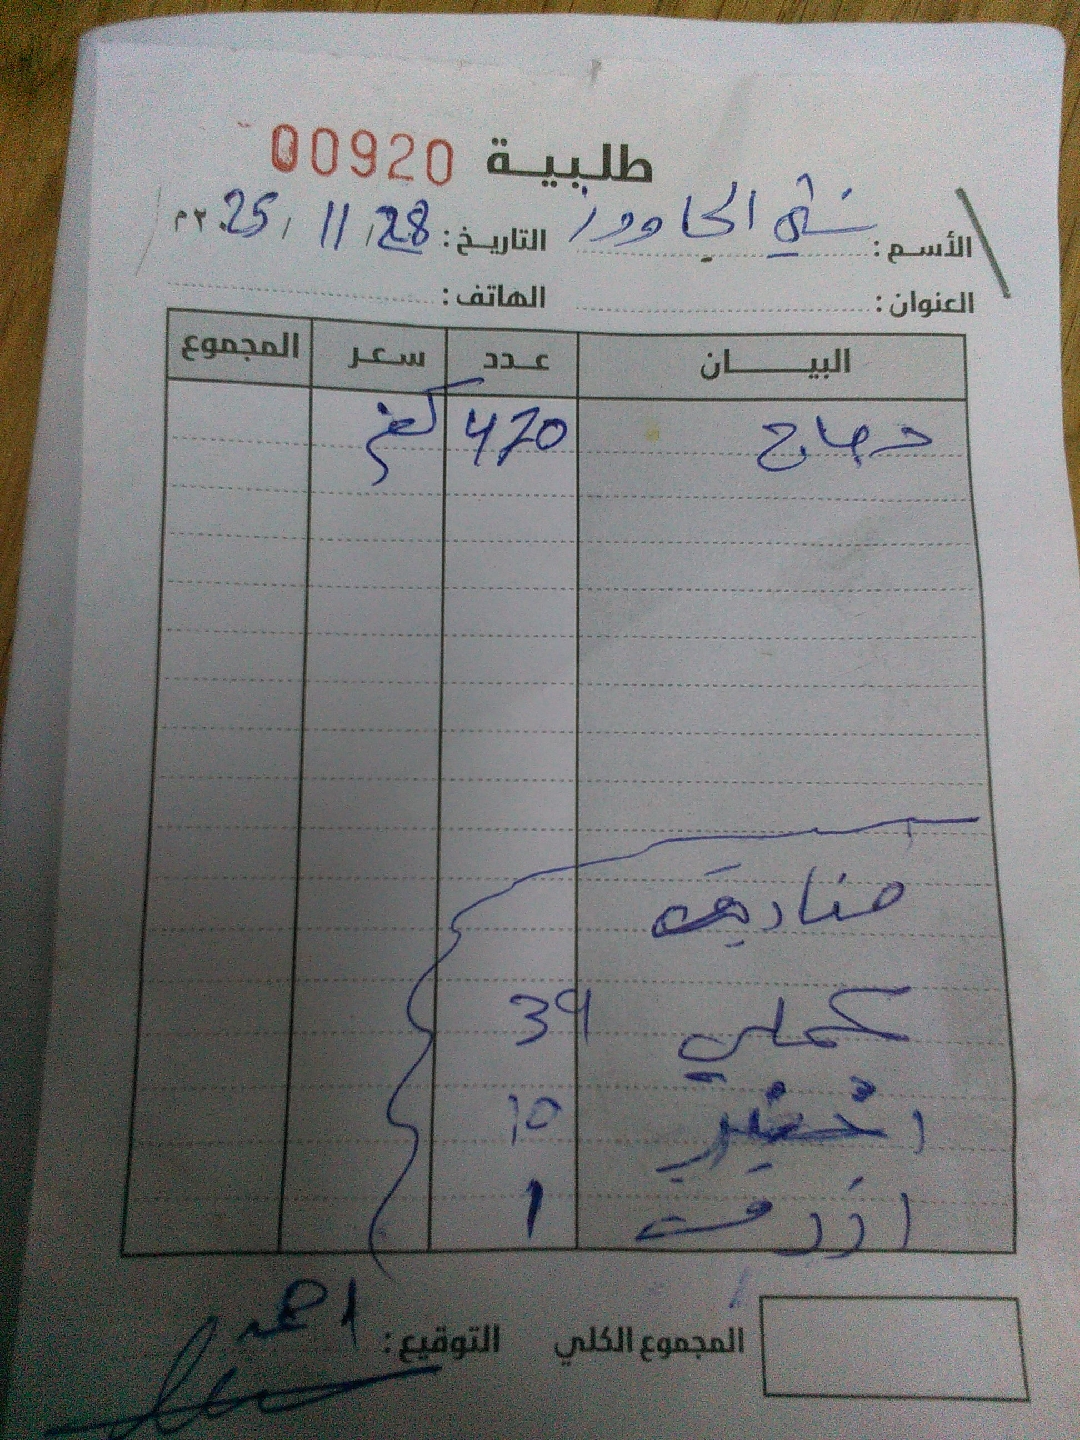 طلبية 00920
الأسم: التاريخ: 28 / 11 / 25 ٢٠م
العنوان: الهاتف:
البيـــان عـدد سعـر المجموع
دجاج 470 كغ
صناديق
كحلي 39
اخضر 10
ازرق 1
المجموع الكلي التوقيع: احمد